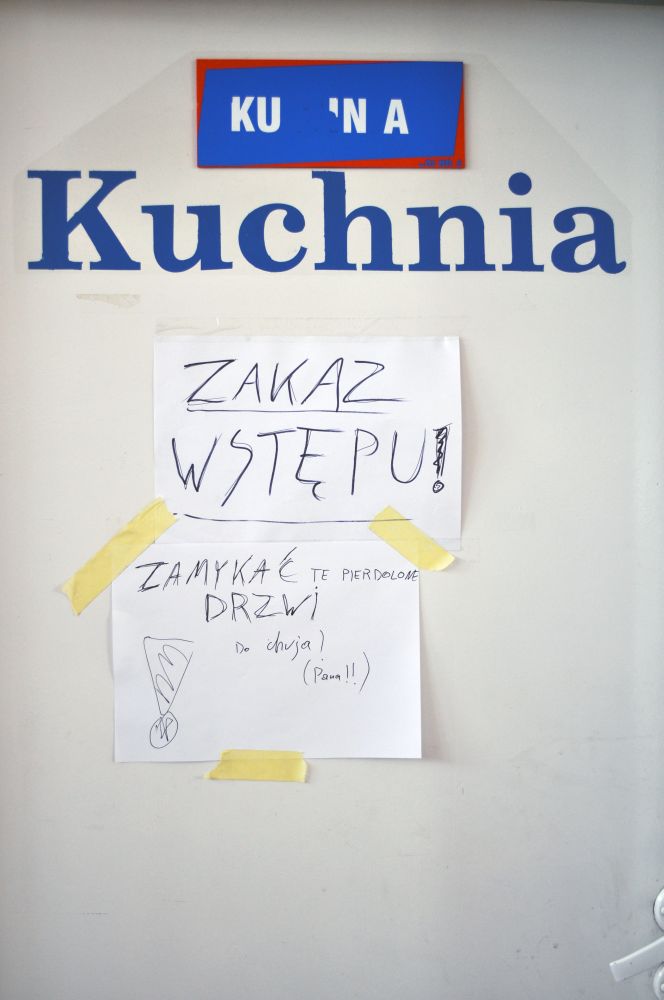 KU 'N A
Kuchnia
ZAKAZ
WSTĘPU!
ZAMYKAĆ TE PIERDOLONE
DRZWi
Do chuja!
(Pana!!)